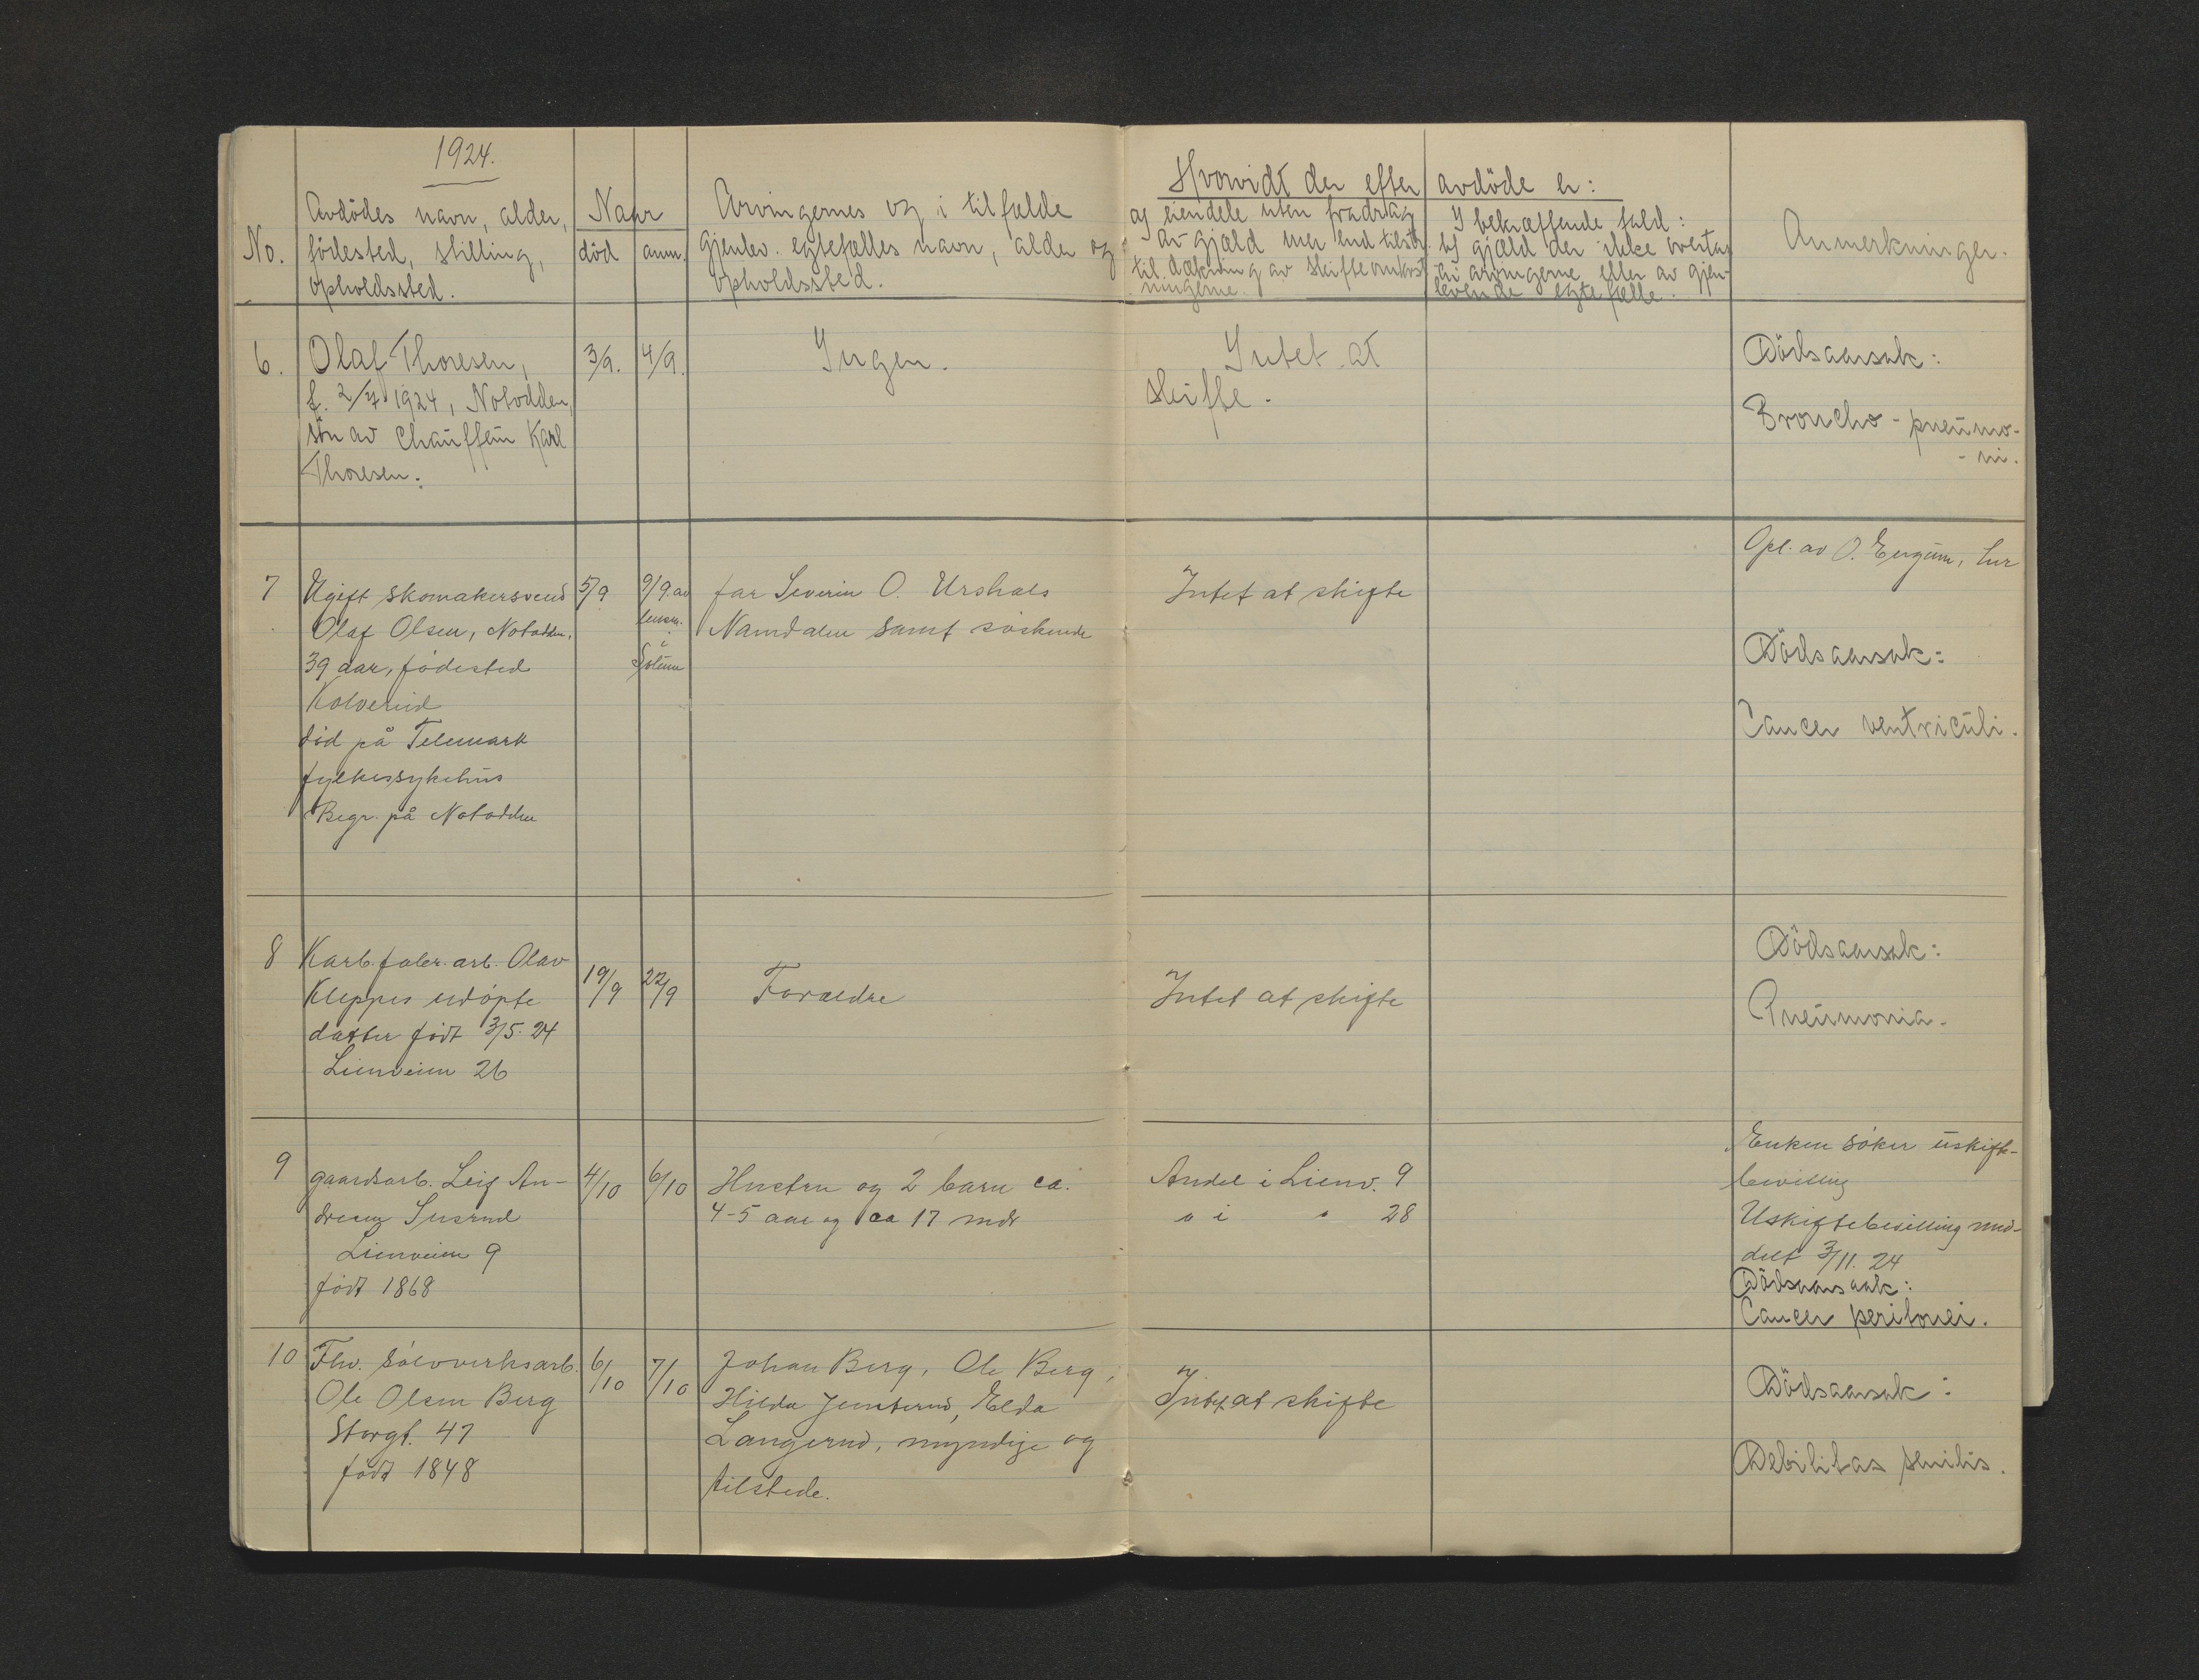 1924.
No.
Avdödes navn, alder,
födested, stilling,
opholdssted.
Naar
död
anm.
Arvingernes og i tilfælde
gjenlev. egtefælles navn, alder og
opholdssted.
Hvorvidt der efter avdöde er:
a) eiendele uten fradrag
av gjæld mer end tilstr.
til dækning av skifteomkost-
ningerne.
I bekræftende fald:
b) gjæld der ikke overtas
av arvingerne eller av gjen-
levende egtefælle.
Anmerkninger.
6.
Olaf Thoresen,
f. 2/7 1924, Notodden,
sön av chauffeur Karl
Thoresen.
3/9.
4/9.
Ingen.
Intet at
skifte.
Dödsaarsak:
Broncho-pneumo-
-ni.
7
Ugift skomakersvend
Olaf Olsen, Notodden.
39 aar, födested
Kolvereid
död på Telemark
fylkessykehus
Begr. på Notodden
5/9
9/9 av
lensm.
i
Solum
far Severin O. Urshals
Namdalen samt söskende
Intet at skifte
Opl. av O. Engum, her
Dödsaarsak:
Cancer ventriculi.
8
Karb.fabr.arb. Olav
Kleppes udöpte
datter född 3/5-24
Lienveien 26
19/9
22/9
Forældre
Intet at skifte
Dödsaarsak:
Pneumonia.
9
gaardsarb. Leif An-
dresen Susrud
Lienveien 9
född 1868
4/10
6/10
Hustru og 2 barn ca.
4-5 aar og ca 17 mdr
Andel i Lienv. 9
" i " 28
Enken söker uskifte-
bevilling
Uskiftebevilling med-
delt 3/11.24
Dödsaarsak:
Cancer peritonei.
10
Fhv. sölvverksarb.
Ole Olsen Berg
Storgt. 47
född 1848
6/10
7/10
Johan Berg, Ole Berg,
Hilda Jernterud, Elda
Langerud, myndige og
tilstede.
Intet at skifte
Dödsaarsak:
Debilitas senilis.